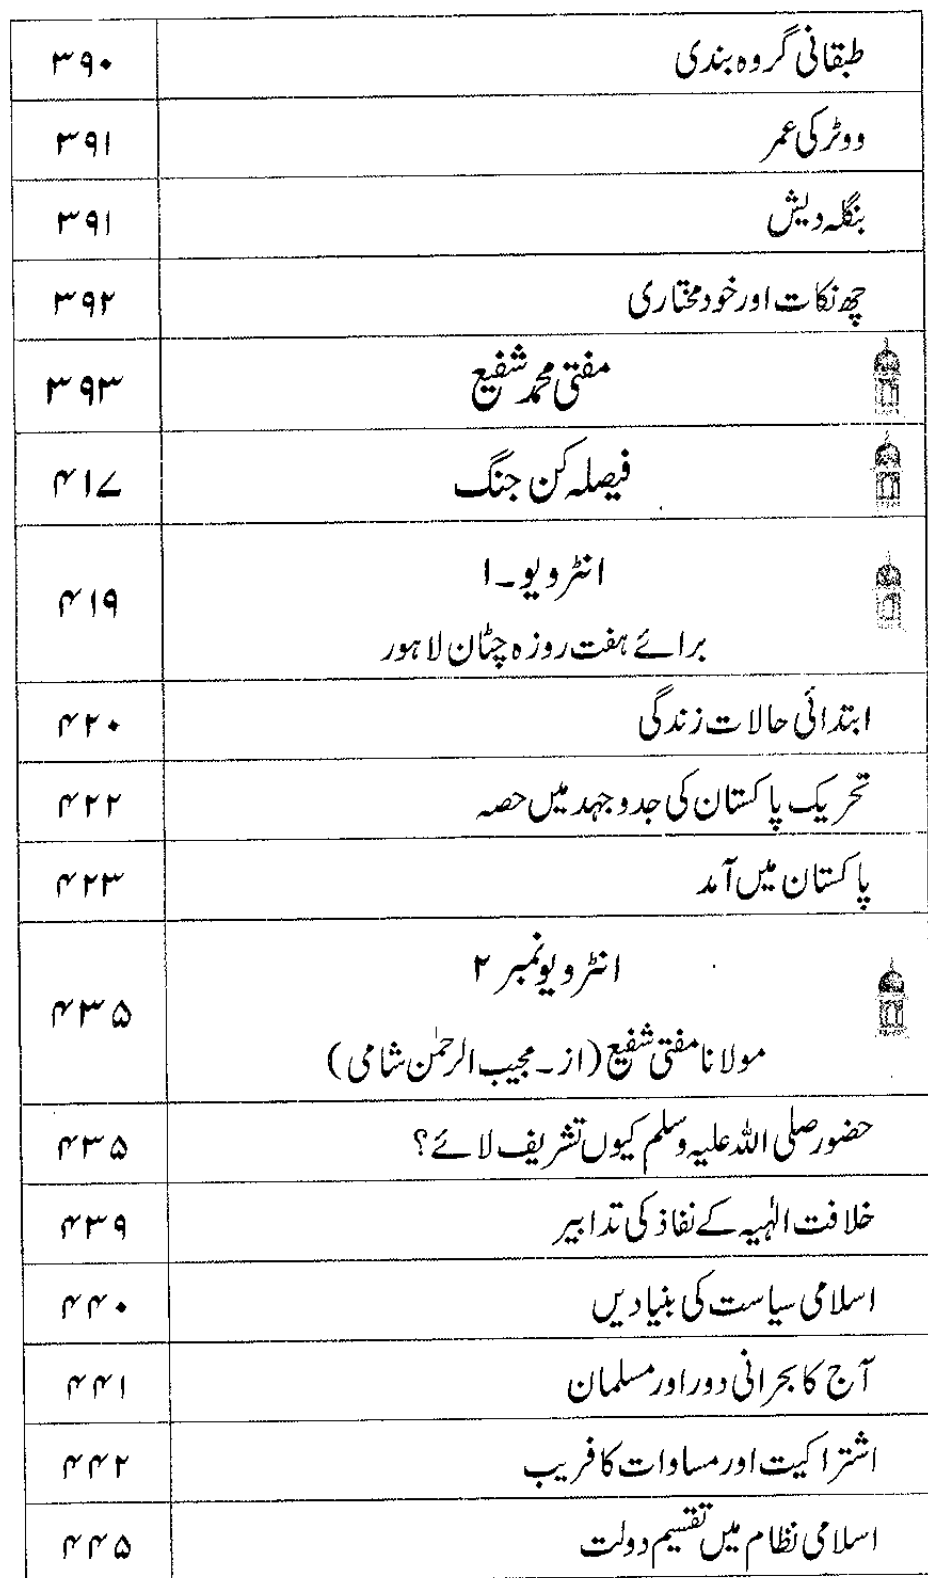 طبقاتی گروہ بندی ۳۹۰
ووٹر کی عمر ۳۹۱
بنگلہ دیش ۳۹۱
چھ نکات اور خود مختاری ۳۹۲
مفتی محمد شفیع ۳۹۳
فیصلہ کن جنگ ۴۱۷
انٹرویو۔۱
برائے ہفت روزہ چٹان لاہور ۴۱۹
ابتدائی حالات زندگی ۴۲۰
تحریک پاکستان کی جدوجہد میں حصہ ۴۲۲
پاکستان میں آمد ۴۲۳
انٹرویو نمبر ۲
مولانا مفتی شفیع (از۔ مجیب الرحمٰن شامی) ۴۳۵
حضور صلی اللہ علیہ وسلم کیوں تشریف لائے؟ ۴۳۵
خلافت الٰہیہ کے نفاذ کی تدابیر ۴۳۹
اسلامی سیاست کی بنیادیں ۴۴۰
آج کا بحرانی دور اور مسلمان ۴۴۱
اشتراکیت اور مساوات کا فریب ۴۴۲
اسلامی نظام میں تقسیم دولت ۴۴۵